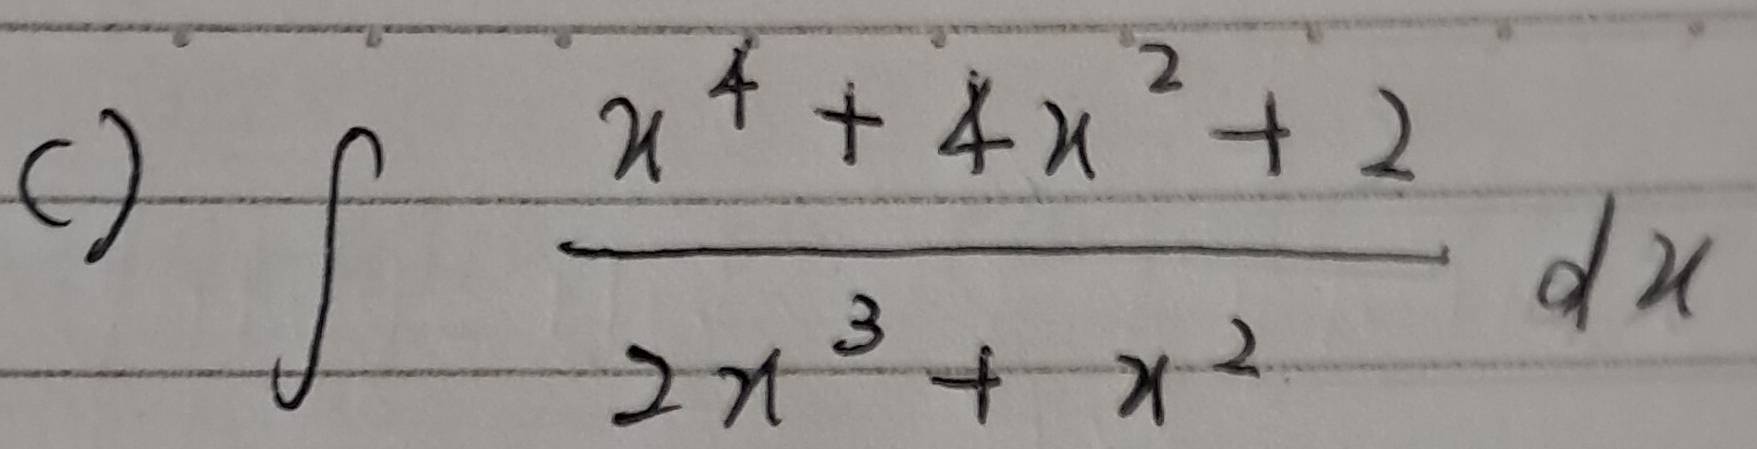 c) ∫ (x^4 + 4x^2 + 2)/(2x^3 + x^2) dx